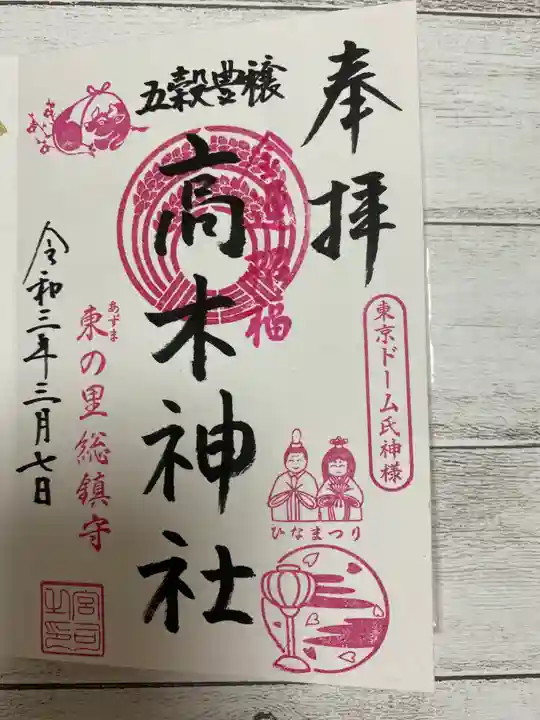 奉拝
東京ドーム氏神様
五穀豊穣
高木神社
福
ひなまつり
あずま
東の里総鎮守
令和三年三月七日